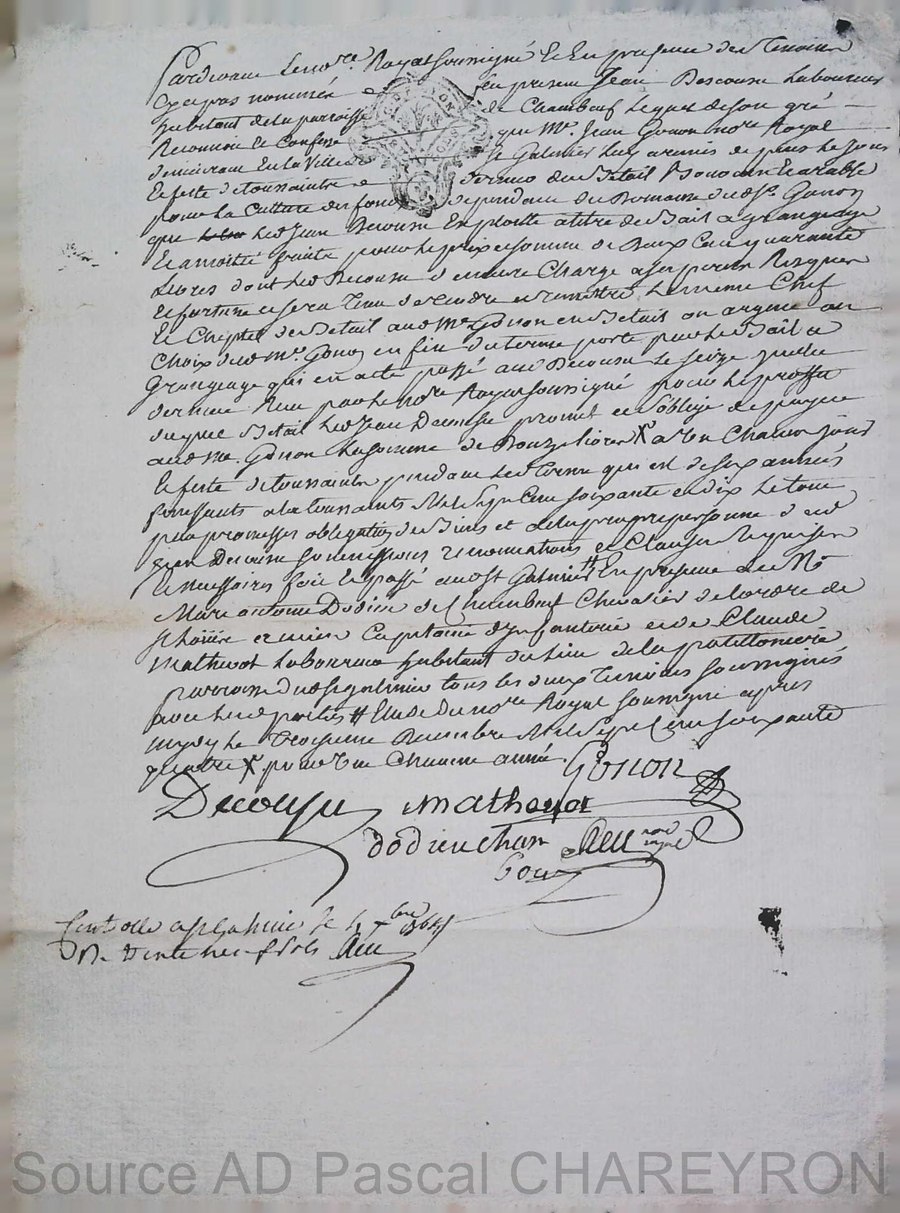 Pardevant le nore Royal soussigné et en presence des temoins
cy apres nommés en present Jean Decouse laboureur
habitant de la parroisse de Chambeuf lequel de son gré
Reconnu et confesse que Mr. Jean Gonon nore Royal
demeurant en la Ville st Galmier luy a remis de plus le jour
et feste de toussaintz de dernier du Betail
pour la culture des fonds dependant du Domaine dud sr. Gonon
que led Jean Decouse Exploite a titre de Bail a grangeage
et a moitié fruits pour le prix et somme de Deux Cent quarante
Livres dont led Decouse demeure Chargé a ses perils Risques
et fortune et sera tenu de rendre et remettre le meme Chef
et Cheptel de Betail aud Me Gonon en Betail ou argent au
Choix dud Mr. Gonon en fin du terme porté par le Bail a
Grangeage qui en a eté passé aud Decouse le seize juillet
dernier Reçu par le nore Royal soussigné pour le proffit
duquel Betail led Jean Decouse promet et s'oblige de payer
aud Me. Gonon la somme de Douze livres X a un Chacun jour
et feste de toussaints pendant led terme qui est de six années
finissants a la toussaints Mil sept Cent soixante et dix le tout
par promesses obligation de Biens et de la propre personne dud
Jean Decouse soumissions renonciations et Clauses Requises
et necessaires fait et passé aud st Galmier # En presence de Mr
Marc antoine Dodieu de Chambeuf Chevalier de l'ordre de
st Louis ancien Capitaine d'Infanterie et de Claude
Mathevot laboureur habitant du lieu de la
parroisse dud st galmier tous les deux Temoins soussignés
avec lesd parties # Etude du nore Royal soussigné apres
midy le Troisieme Decembre Mil sept Cent soixante
quatre X pour Une Chacune année. Gonon
Decouse mathevot
dodieu cham
nore royal
Controllé a st galmier le 4 xbre 1764
Rx Vinte neuf sols
Source AD Pascal CHAREYRON